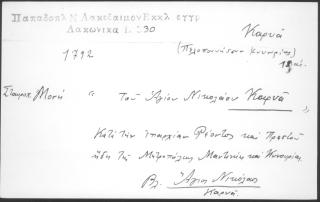 Παπαδοπλ Ν Λακεδαιμον Εκκλ εγγρ
Λακωνικα 1. 230
Καρυά
(Πελοποννήσου Κυνουρίας)
1792
Σταυροπ Μονή " Τοῦ Ἁγίου Νικολάου Καρυᾶ
Κατά τήν ἐπαρχίαν Ρέοντος καί Πραστοῦ
ἤδη τῆς Μητροπόλεως Μαντινείας καί Κυνουρίας.
Βλ. Ἅγιος Νικόλαος
Καρυά.